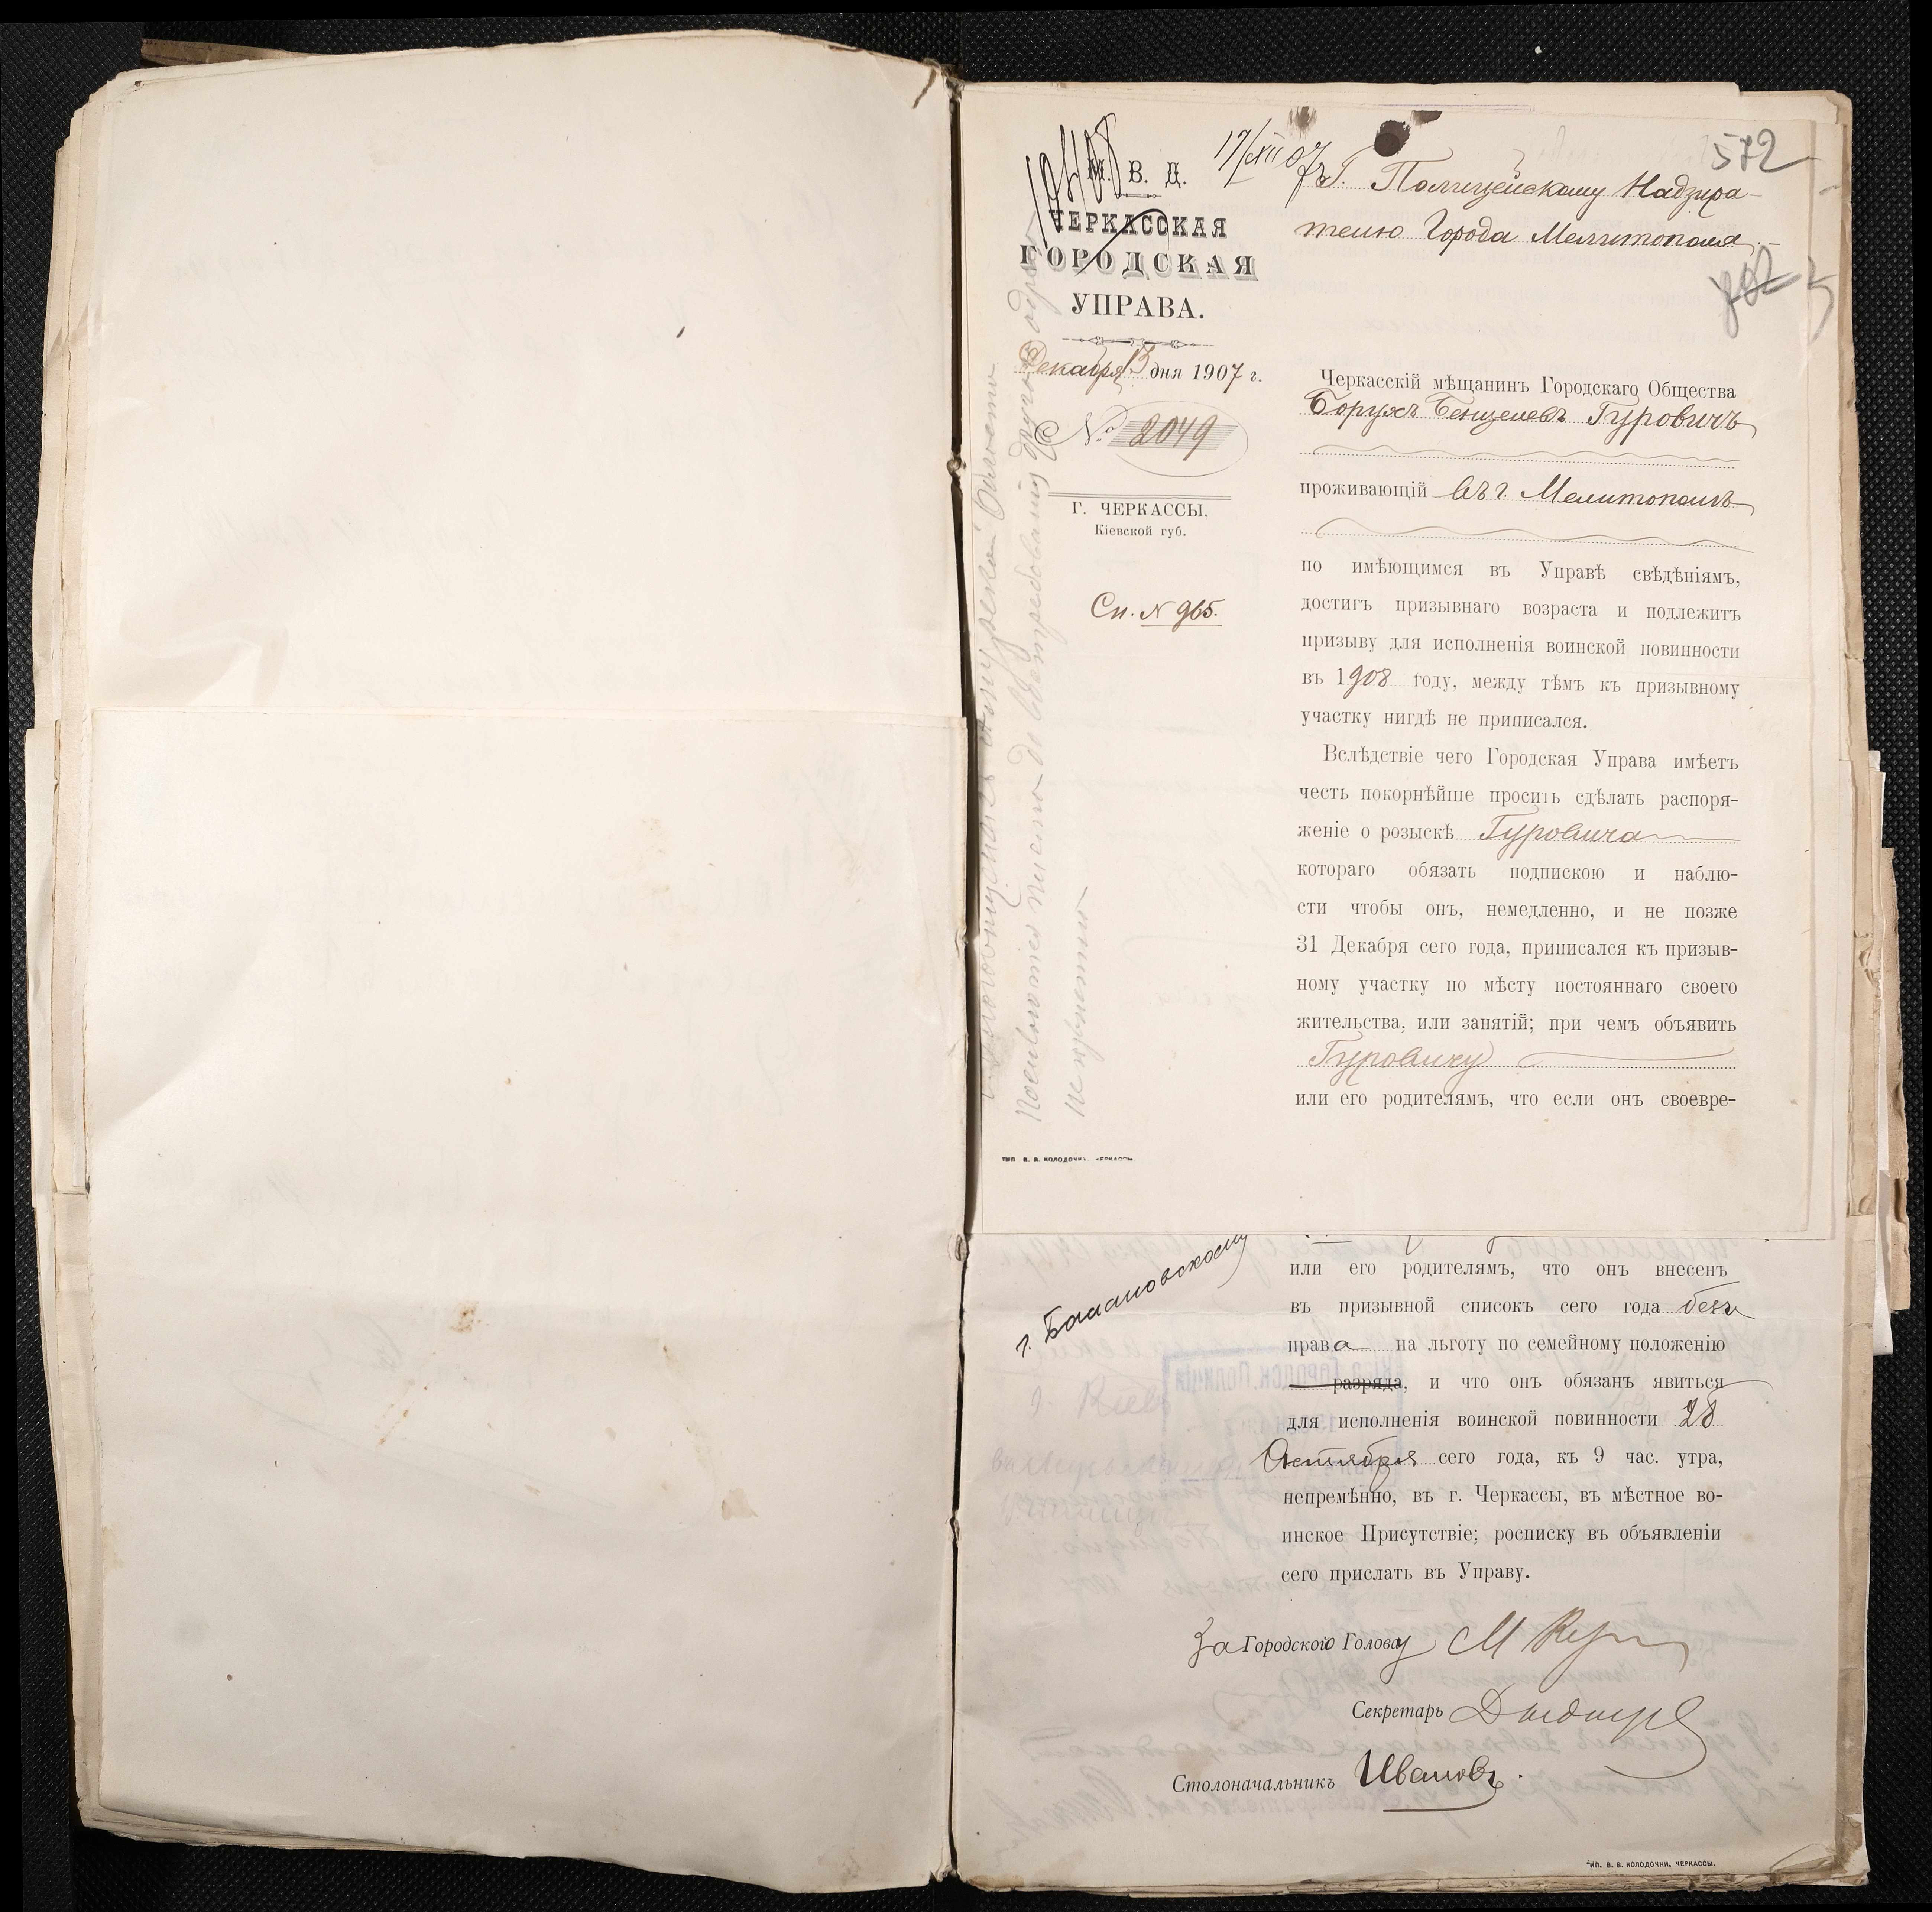 572
17/XII 07
М. В. Д.
ЧЕРКАССКАЯ
ГОРОДСКАЯ
УПРАВА.
Декабря 13 дня 1907 г.
№ 2049
Г. ЧЕРКАССЫ,
Кіевской губ.
Сп. № 965.
Г. Полицейскому Надзира-
телю Города Мелитополя
Черкасскій мѣщанинъ Городскаго Общества
Борухъ Бенцелевъ Гуровичъ
проживающій въ г. Мелитополѣ
по имѣющимся въ Управѣ свѣдѣніямъ,
достигъ призывнаго возраста и подлежитъ
призыву для исполненія воинской повинности
въ 1908 году, между тѣмъ къ призывному
участку нигдѣ не приписался.
Вслѣдствіе чего Городская Управа имѣетъ
честь покорнѣйше просить сдѣлать распоря-
женіе о розыскѣ Гуровича
котораго обязать подпискою и наблю-
сти чтобы онъ, немедленно, и не позже
31 Декабря сего года, приписался къ призыв-
ному участку по мѣсту постояннаго своего
жительства, или занятій; при чемъ объявить
Гуровичу
или его родителямъ, что если онъ своевре-
ТИП. В. В. КОЛОДОЧКИ, ЧЕРКАССЫ.
г. Балановскому
или его родителямъ, что онъ внесенъ
въ призывной списокъ сего года безъ
права на льготу по семейному положенію
разряда, и что онъ обязанъ явиться
для исполненія воинской повинности 28
Октября сего года, къ 9 час. утра,
непремѣнно, въ г. Черкассы, въ мѣстное во-
инское Присутствіе; росписку въ объявленіи
сего прислать въ Управу.
За Городского Голову
Секретарь
Столоначальникъ Ивановъ.
ТИП. В. В. КОЛОДОЧКИ, ЧЕРКАССЫ.